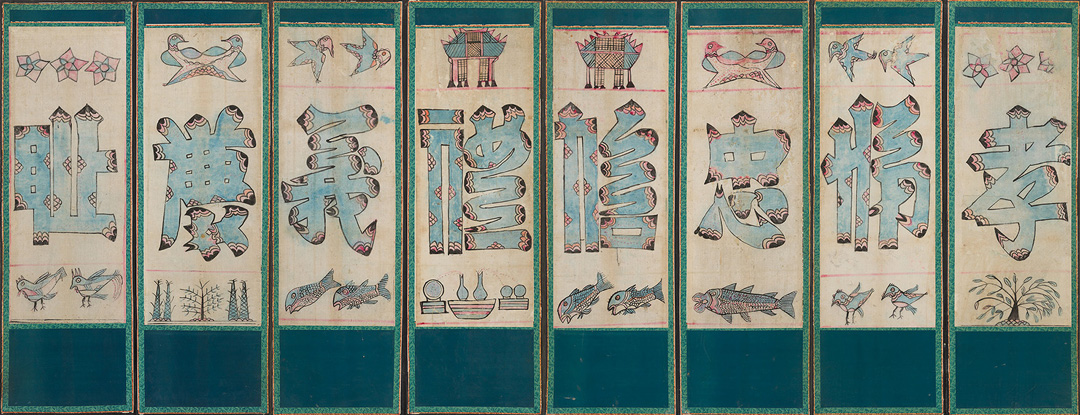 孝
悌
忠
信
禮
義
廉
耻